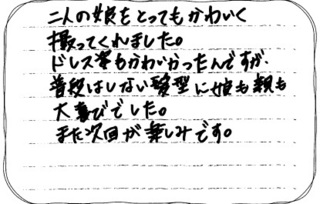 二人の娘をとってもかわいく
撮ってくれました。
ドレス等もかわいかったんですが、
普段はしない髪型に娘も親も
大喜びでした。
また次回が楽しみです。